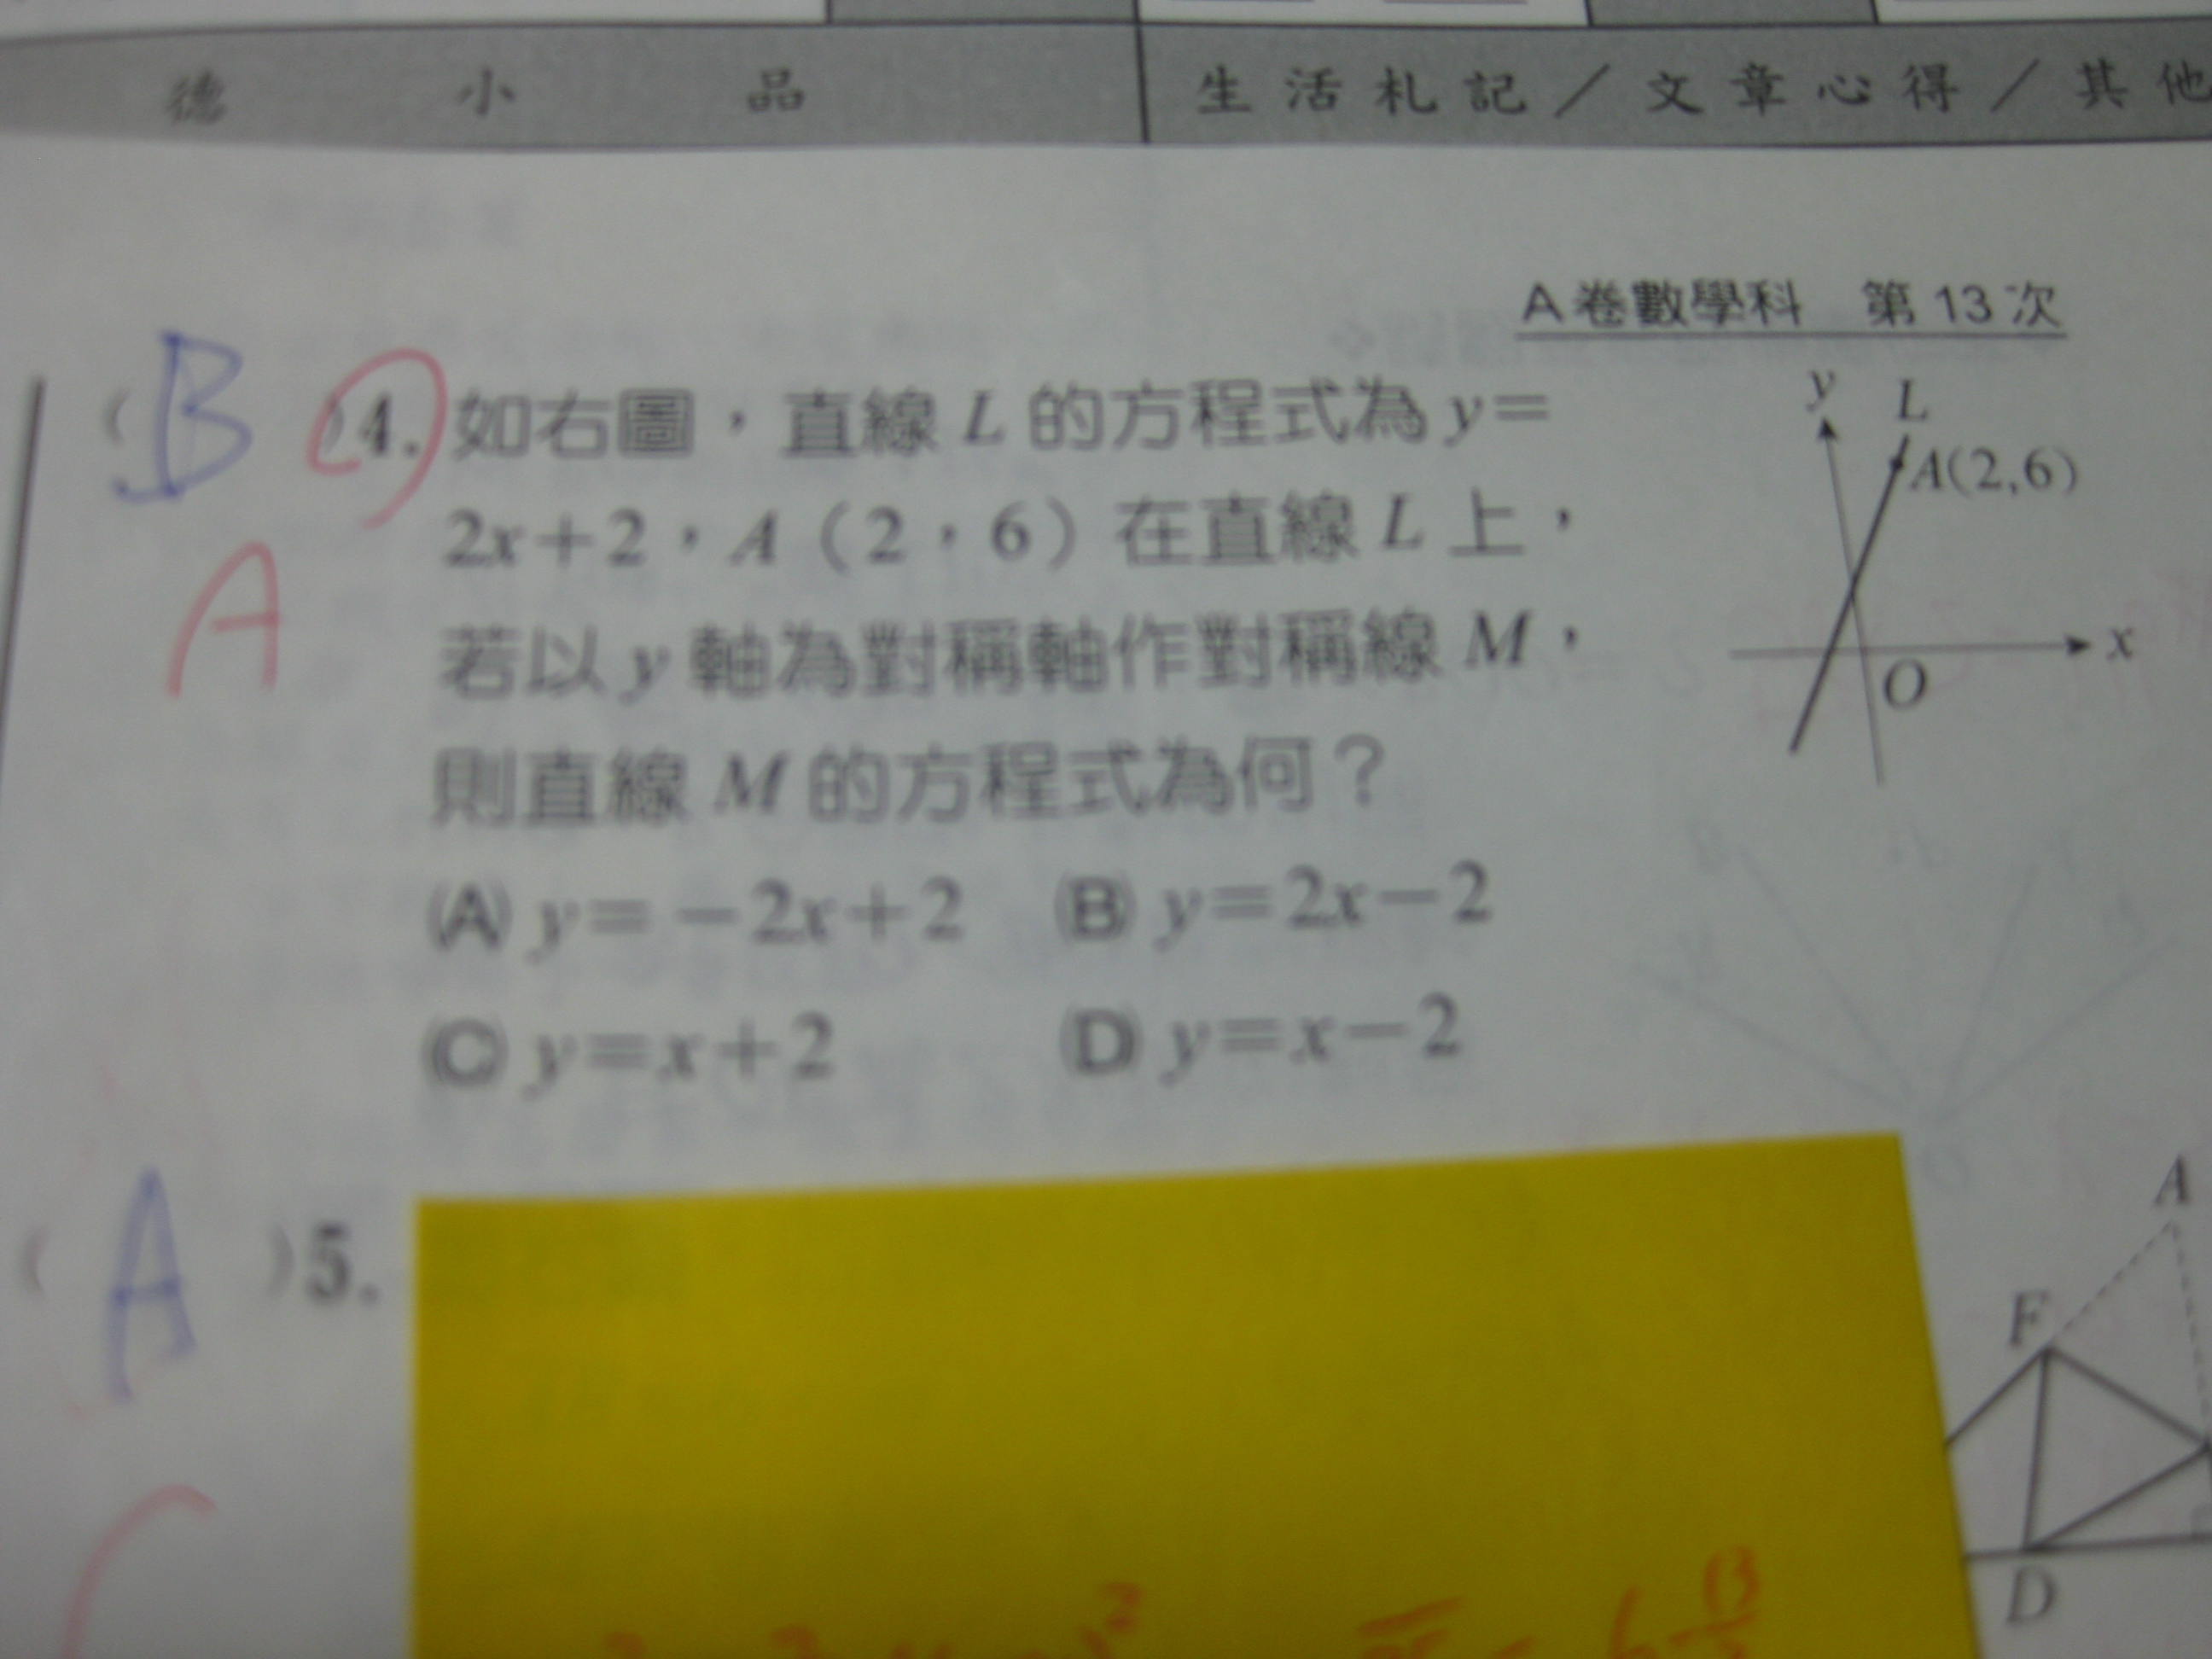 德小品 生活札記／文章心得／其他
A卷數學科 第13次
( B )4. 如右圖，直線 L 的方程式為 y=
2x+2，A（2，6）在直線 L 上，
若以 y 軸為對稱軸作對稱線 M，
則直線 M 的方程式為何？
(A) y=-2x+2 (B) y=2x-2
(C) y=x+2 (D) y=x-2
A
y
L
A(2,6)
x
O
( A )5.
A
F
D